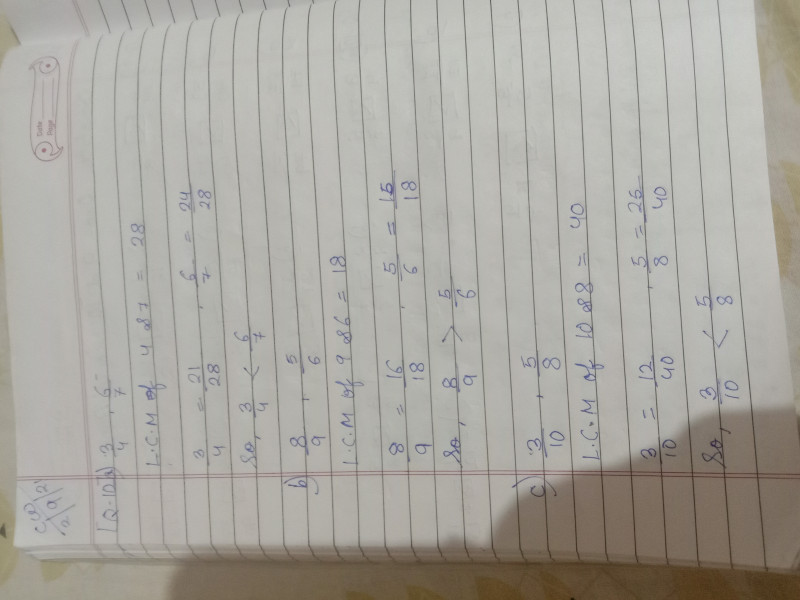 Date
Page
Q.10 a) 3/4 , 6/7
L.C.M of 4 & 7 = 28
3/4 = 21/28 , 6/7 = 24/28
So, 3/4 < 6/7
b) 8/9 , 5/6
L.C.M of 9 & 6 = 18
8/9 = 16/18 , 5/6 = 15/18
So, 8/9 > 5/6
c) 3/10 , 5/8
L.C.M of 10 & 8 = 40
3/10 = 12/40 , 5/8 = 25/40
So, 3/10 < 5/8